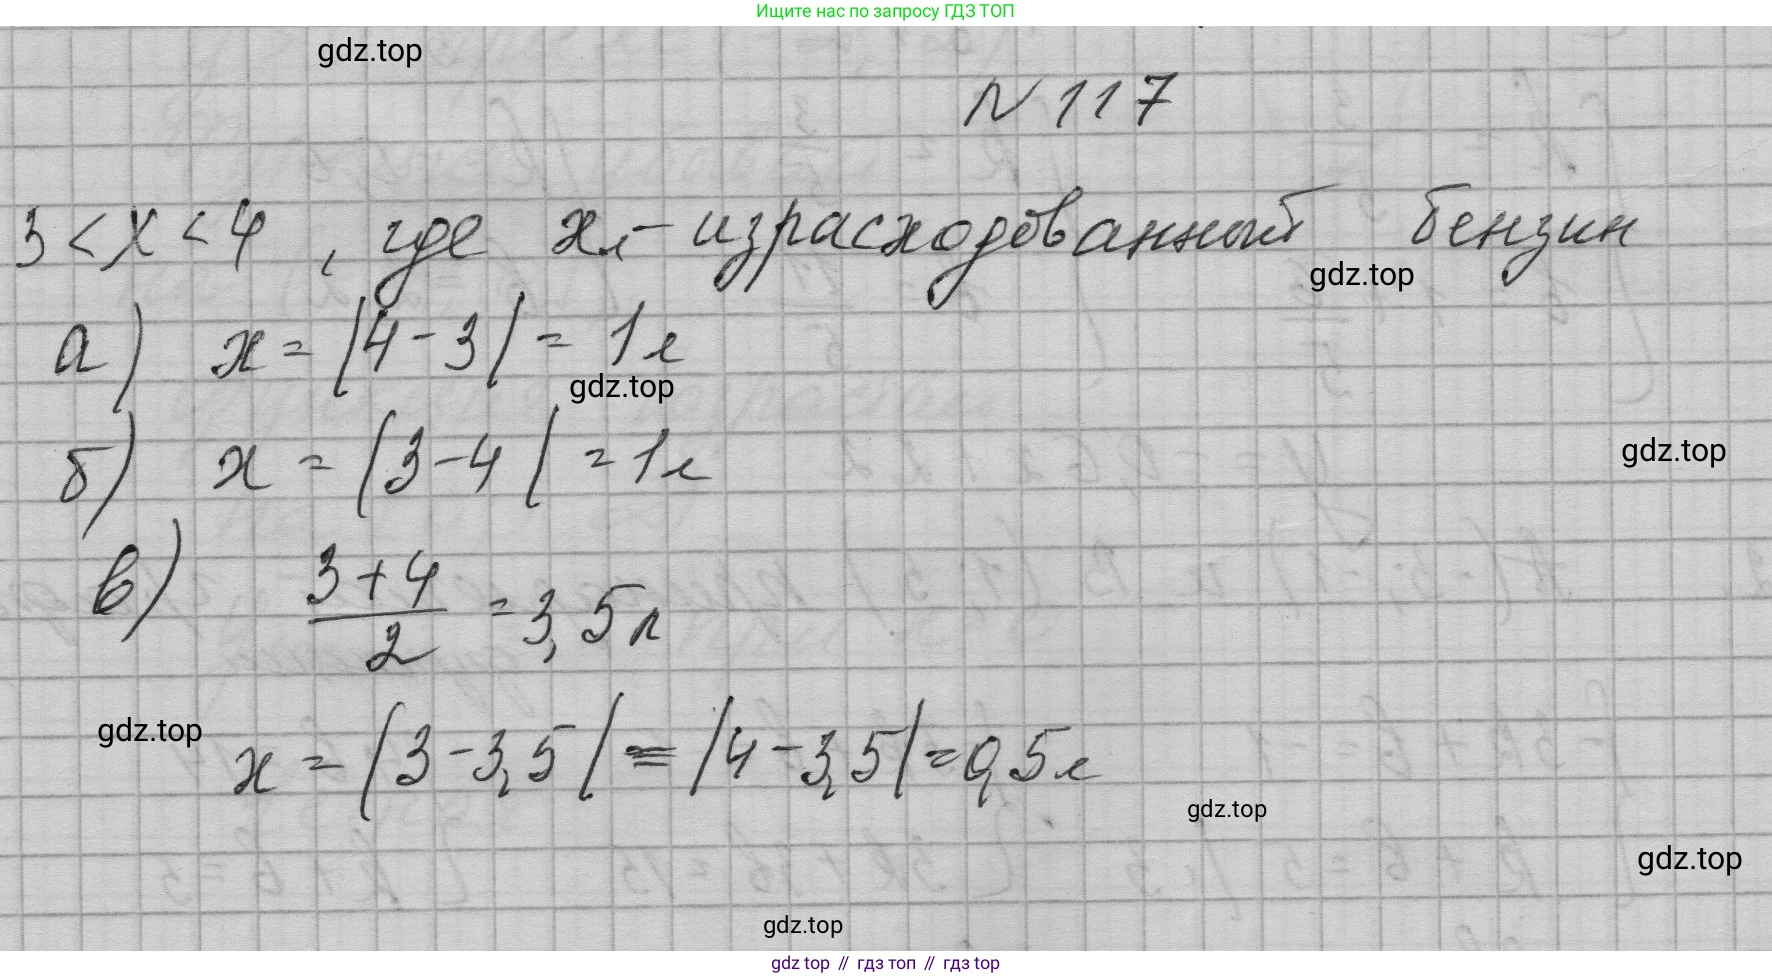 Ищите нас по запросу ГДЗ ТОП
gdz.top
N 117
3 < x < 4 , где x л - израсходованный бензин
gdz.top
а) x = |4 - 3| = 1 л
gdz.top
б) x = |3 - 4| = 1 л
gdz.top
в) (3 + 4)/2 = 3,5 л
gdz.top
x = |3 - 3,5| = |4 - 3,5| = 0,5 л
gdz.top
gdz.top
gdz.top
gdz top // гдз топ // гдз top